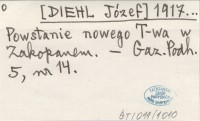 [DIEHL Józef] 1917...
Powstanie nowego T-wa w
Zakopanem. – Gaz. Podh.
5, nr 14.